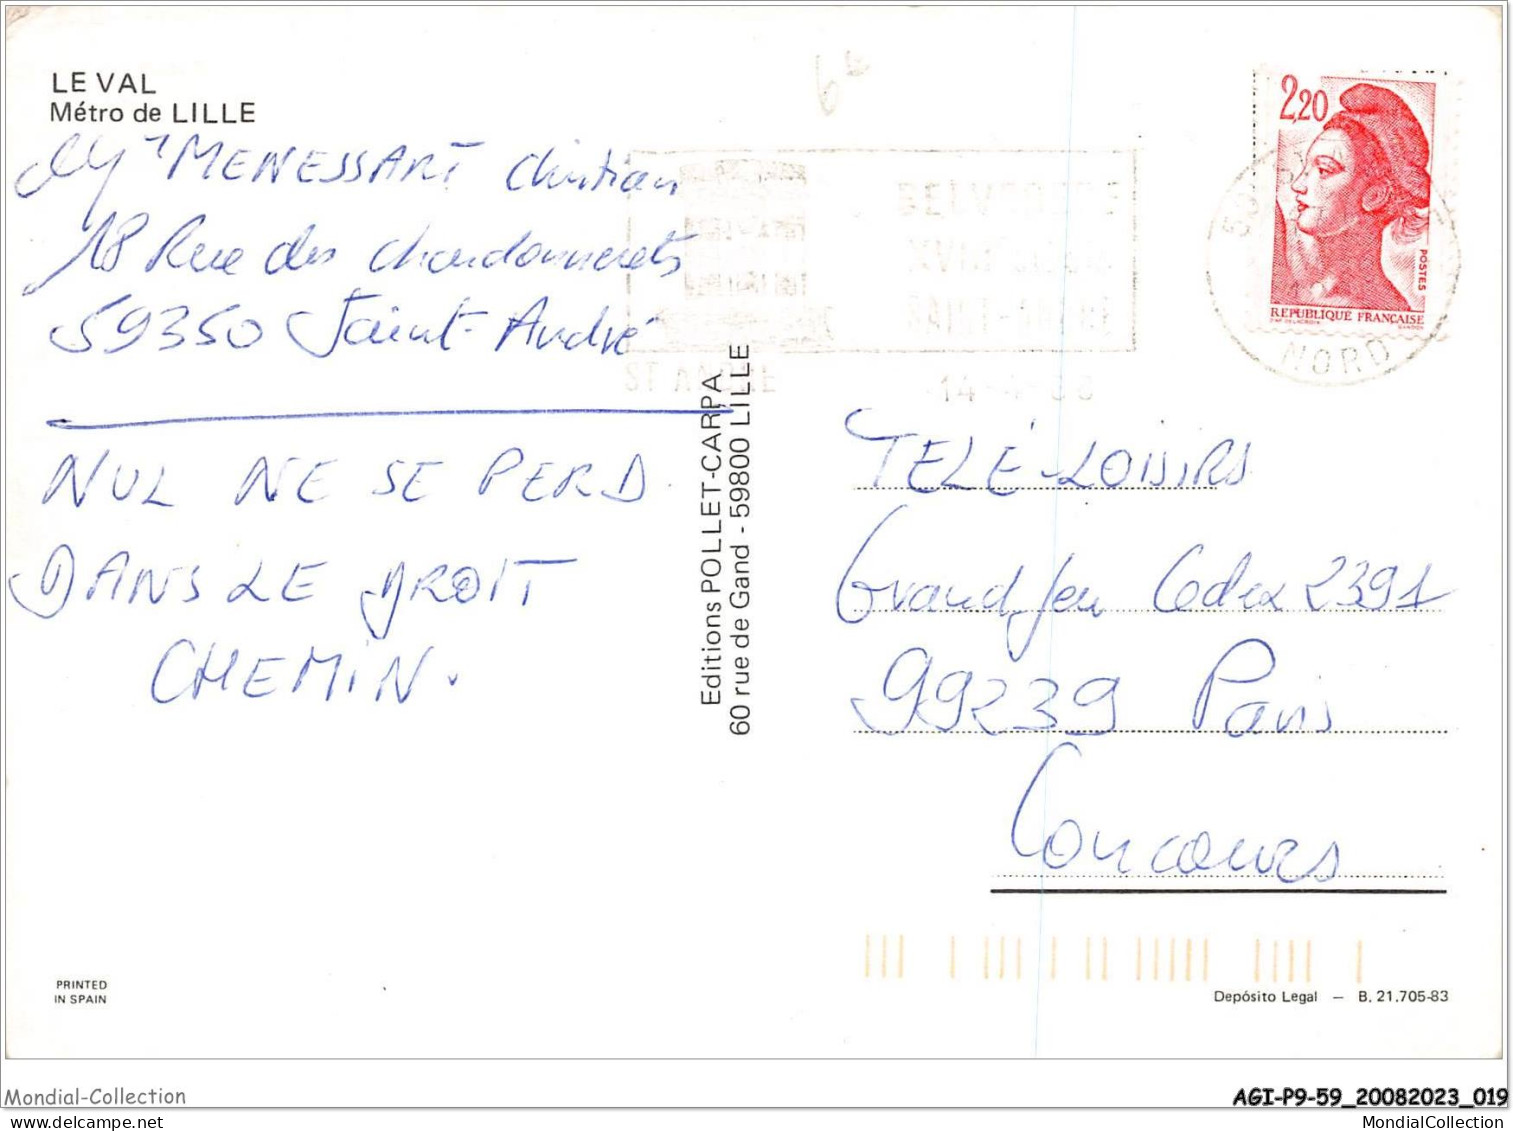 LE VAL
Métro de LILLE
Mr MENESSART Christian
18 Rue des chardonnerets
59350 Saint-André
NUL NE SE PERD
DANS LE DROIT
CHEMIN.
PRINTED
IN SPAIN
Editions POLLET-CARPA
60 rue de Gand - 59800 LILLE
BELVEDERE
SAINT-ANDRÉ
ST ANDRE
14-4-
2,20
POSTES
REPUBLIQUE FRANÇAISE
NORD
TELÉ-LOISIRS
Grand Jeu Cedex 2391
99239 Paris
Concours
Depósito Legal — B. 21.705-83
Mondial-Collection
AGI-P9-59_20082023_019
MondialCollection